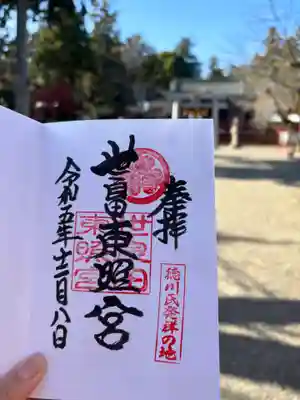 奉拝
世良田東照宮
世良田
東照宮
徳川氏発祥の地
令和五年十二月八日